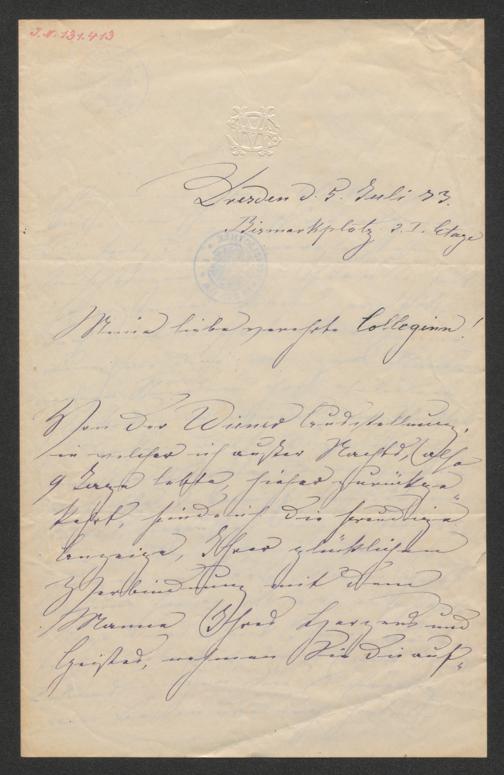 J.N. 131.413
Dresden d. 5. Juli 73.
Bismarkplatz 2. I. Etage
Meine liebe verehrte Colleginn!
Von der Wiener Ausstellung,
in welcher ich außer Nachts, (also
9 Tage lebte, hieher zurückge
kehrt, finde ich die freudige
Anzeige, Ihrer glücklichen
Verbindung mit dem
Manne Ihres Herzens und
Geistes, nehmen Sie die auf-